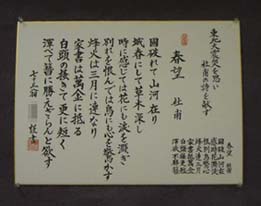 東北大震災を思い
杜甫の詩を献ず
春望　杜甫
国破れて山河在り
城春にして草木深し
時に感じては花にも涙を濺ぎ
別れを恨んでは鳥にも心を驚かす
烽火は三月に連なり
家書は萬金に抵る
白頭は掻きて更に短く
渾べて簪に勝えざらんと欲す
春望　杜甫
國破山河在
城春草木深
感時花濺淚
恨別鳥驚心
烽火連三月
家書抵萬金
白頭掻更短
渾欲不勝簪